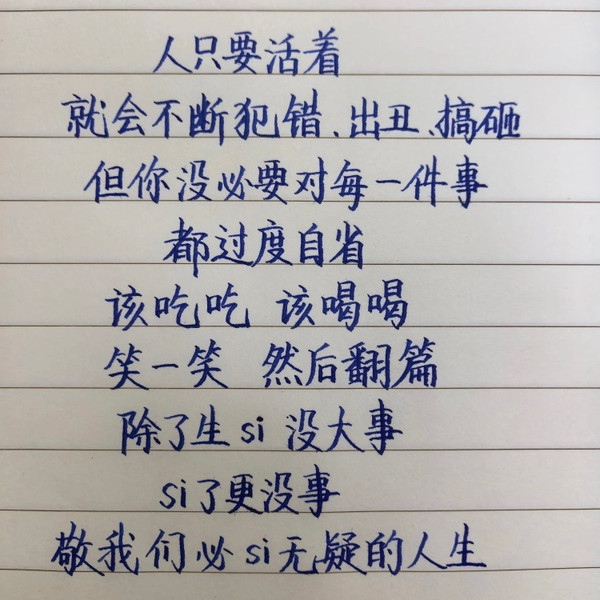 人只要活着
就会不断犯错、出丑、搞砸
但你没必要对每一件事
都过度自省
该吃吃 该喝喝
笑一笑 然后翻篇
除了生si 没大事
si了更没事
敬我们必si无疑的人生